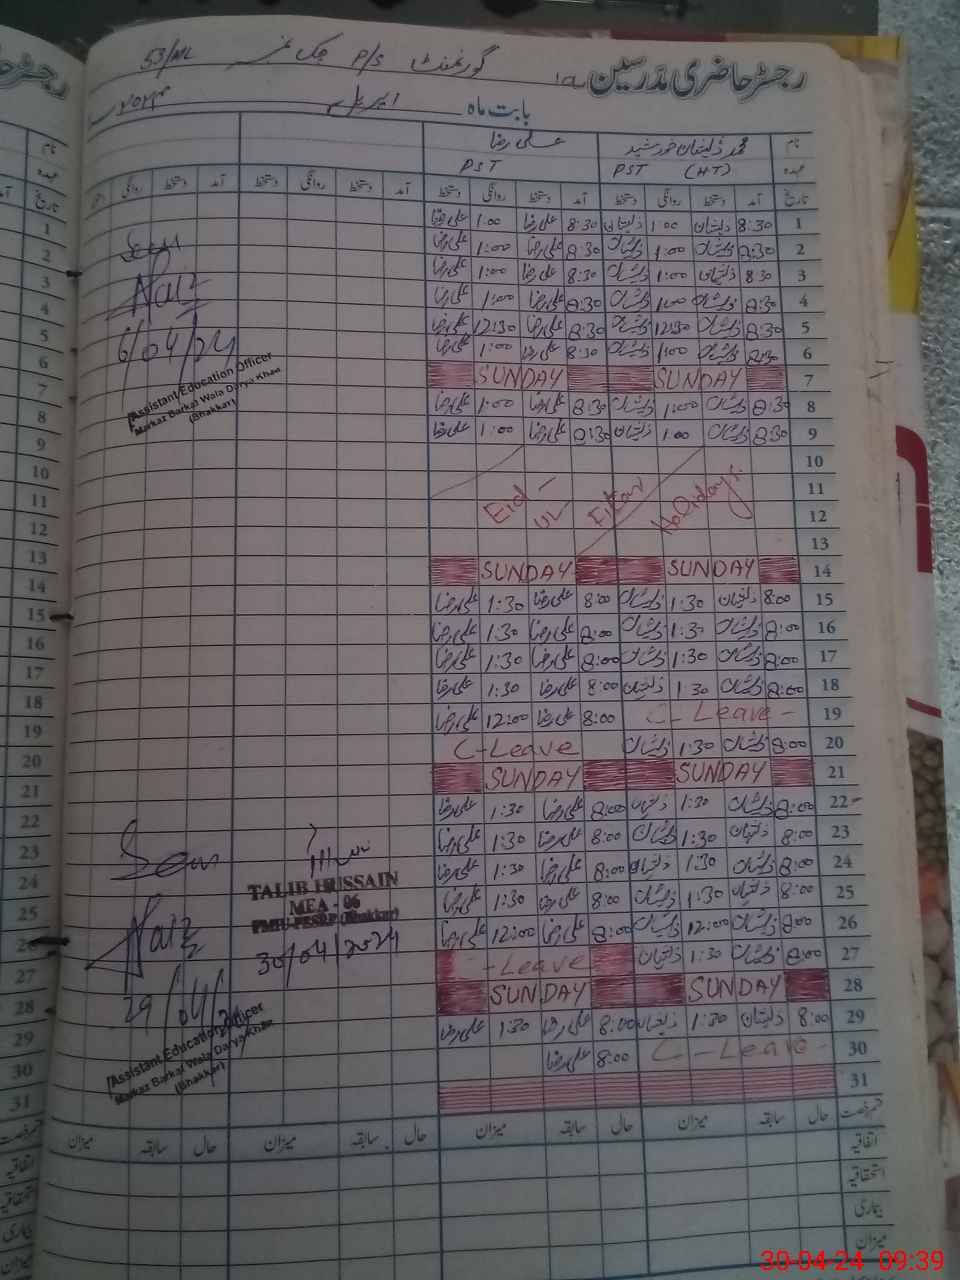 رجسٹر حاضری مدرسین گورنمنٹ P/S چک نمبر 53/ML
بابت ماہ اپریل
نام علی رضا
عہدہ PST (HT) PST
تاریخ آمد دستخط روانگی دستخط آمد دستخط روانگی دستخط آمد دستخط روانگی دستخط آمد دستخط روانگی
1 8:30 ذلیشان 1:00 ذلیشان 8:30 علی رضا 1:00 علی رضا
2 8:30 ذلیشان 1:00 ذلیشان 8:30 علی رضا 1:00 علی رضا
3 8:30 ذلیشان 1:00 ذلیشان 8:30 علی رضا 1:00 علی رضا
4 8:30 ذلیشان 1:00 ذلیشان 8:30 علی رضا 1:00 علی رضا
5 8:30 ذلیشان 12:30 ذلیشان 8:30 علی رضا 12:30 علی رضا
6 8:30 ذلیشان 1:00 ذلیشان 8:30 علی رضا 1:00 علی رضا
7 SUNDAY SUNDAY
8 8:30 ذلیشان 1:00 ذلیشان 8:30 علی رضا 1:00 علی رضا
9 8:30 ذلیشان 1:00 ذلیشان 8:30 علی رضا 1:00 علی رضا
10
11 Eid - UL - Fitar Holidays.
12
13
14 SUNDAY SUNDAY
15 8:00 ذلیشان 1:30 ذلیشان 8:00 علی رضا 1:30 علی رضا
16 8:00 ذلیشان 1:30 ذلیشان 8:00 علی رضا 1:30 علی رضا
17 8:00 ذلیشان 1:30 ذلیشان 8:00 علی رضا 1:30 علی رضا
18 8:00 ذلیشان 1:30 ذلیشان 8:00 علی رضا 1:30 علی رضا
19 C - Leave - 8:00 علی رضا 12:00 علی رضا
20 8:00 ذلیشان 1:30 ذلیشان C - Leave
21 SUNDAY SUNDAY
22 8:00 ذلیشان 1:30 ذلیشان 8:00 علی رضا 1:30 علی رضا
23 8:00 ذلیشان 1:30 ذلیشان 8:00 علی رضا 1:30 علی رضا
24 8:00 ذلیشان 1:30 ذلیشان 8:00 علی رضا 1:30 علی رضا
25 8:00 ذلیشان 1:30 ذلیشان 8:00 علی رضا 1:30 علی رضا
26 8:00 ذلیشان 12:00 ذلیشان 8:00 علی رضا 12:00 علی رضا
27 8:00 ذلیشان 1:30 ذلیشان C - Leave
28 SUNDAY SUNDAY
29 8:00 ذلیشان 1:30 ذلیشان 8:00 علی رضا 1:30 علی رضا
30 C - Leave - 8:00 علی رضا
31
قسم رخصت حال سابقہ میزان حال سابقہ میزان حال سابقہ میزان حال سابقہ میزان
اتفاقیہ
استحقاقیہ
بیماری
میزان
Seen
Naiz
6/04/24
Assistant Education Officer
Markaz Barkat Wala Darya Khan
(Bhakkar)
Seen
Naiz
29/04/24
Assistant Education Officer
Markaz Barkat Wala Darya Khan
(Bhakkar)
TALIB HUSSAIN
MEA - 06
PMIU-PESRP (Bhakkar)
30/04/2024
رجسٹر حا
نام
عہدہ
تاریخ
1
2
3
4
5
6
7
8
9
10
11
12
13
14
15
16
17
18
19
20
21
22
23
24
25
26
27
28
29
30
31
اتفاقیہ
استحقاقیہ
بیماری
میزان
30-04-24 09:39